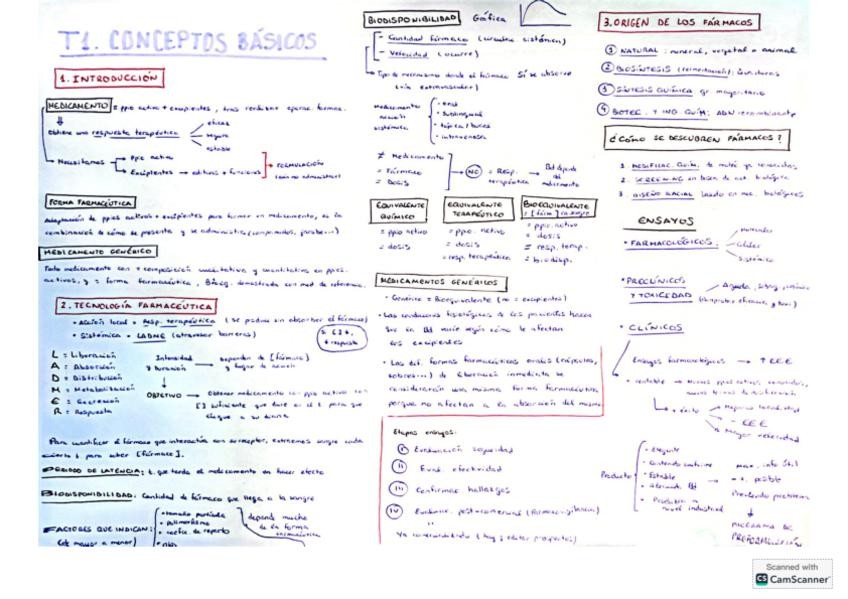 T1. CONCEPTOS BÁSICOS
1. INTRODUCCIÓN
MEDICAMENTO = ppio activo + excipientes, tras realizar operac. farmac.
Obtiene una respuesta terapéutica
eficaz
segura
estable
Necesitamos
Ppio activo
Excipientes → aditivos + funciones
FORMULACIÓN
FORMA FARMACÉUTICA
Adaptación de ppios activos + excipientes para formar un medicamento, es la
combinación de cómo se presenta y se administra (comprimidos, jarabe...)
MEDICAMENTO GENÉRICO
Todo medicamento con = composición cualitativa y cuantitativa en ppios
activos, y = forma farmacéutica, demostrada con med de referencia.
2. TECNOLOGÍA FARMACÉUTICA
Acción local = Resp. terapéutica (se podría sin absorber el fármaco)
Sistémica = LADME (atravesar barreras)
L = Liberación
A = Absorción
D = Distribución
M = Metabolización
E = Excreción
R = Respuesta
Intensidad
y duración
dependen de [fármaco]
y lugar de acción
OBJETIVO → Obtener medicamento con ppio activo con
[ ] suficiente que dure el t para que
llegue a su diana
Para cuantificar el fármaco que interacciona con su receptor, extraemos sangre cada
cierto t para saber [fármaco].
PERIODO DE LATENCIA: t. que tarda el medicamento en hacer efecto
BIODISPONIBILIDAD: Cantidad de fármaco que llega a la sangre
FACTORES QUE INDICAN:
(de mayor a menor)
tamaño partícula
polimorfismo
coefic. de reparto
depende mucho
de la forma
farmacéutica
BIODISPONIBILIDAD Gráfica
Cantidad fármaco (circulac sistémica)
Velocidad (ocurre)
Tipo de mecanismo donde el fármaco sí se absorbe
(vía extravascular)
Medicamento
acción
sistémica
oral
sublingual
intravenosa
≠ Medicamento
= Fármaco
= Dosis
NO
= Resp.
terapéutica
Bd depende
del
medicamento
EQUIVALENTE
QUÍMICO
= ppio activo
= dosis
EQUIVALENTE
TERAPÉUTICO
= ppio. activo
= dosis
= resp. terapéutica
BIOEQUIVALENTE
= ppio. activo
= dosis
= resp. terap.
= biodisp.
MEDICAMENTOS GENÉRICOS
Genérico = Bioequivalente (no = excipientes)
Las condiciones fisiológicas de los pacientes hacen
que su Bd varíe según cómo le afectan
los excipientes
Las dif. formas farmacéuticas orales (cápsulas,
sobres...) de liberación inmediata se
considerarán una misma forma farmacéutica
porque no afectan a la absorción del mismo
Etapas ensayos:
I Evaluación seguridad
II Eval. efectividad
III Confirmar hallazgos
IV Evaluac. post-comercial (farmacovigilancia)
Ya comercializado (hay y edito prospectos)
3. ORIGEN DE LOS FÁRMACOS
1 NATURAL: mineral, vegetal o animal
2 BIOSÍNTESIS (fermentación): levaduras
3 SÍNTESIS QUÍMICA gr mayoritario
4 BIOTEC. Y ING. QUÍM: ADN recombinante
¿CÓMO SE DESCUBREN FÁRMACOS?
1. MODIFICAC. QUÍM. de moléc ya conocidas
2. SCREENING en busca de act. biológica
3. DISEÑO RACIAL basado en mec. biológicos
ENSAYOS
FARMACOLÓGICOS:
Molecular
Celular
Sistémico
PRECLÍNICOS
Y TOXICIDAD
Aguda, subag, crónica
CLÍNICOS
Ensayos farmacológicos → ↑ €€€
rentable
éxito
Mayor velocidad
Producto
Elegante
Contenido uniforme
Estable
Adecuada Bd
Producible a
nivel industrial
max. info útil
posible
Previendo problemas
PROGRAMA DE
PREFORMULACIÓN
Scanned with
CS CamScanner